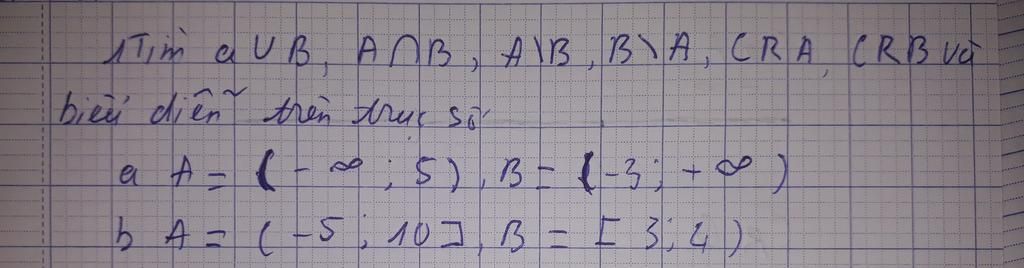 1Tìm a ∪ B, A ∩ B, A\B, B\A, CRA, CRB và
biểu diễn trên trục số
a A = (-∞; 5), B = (-3; +∞)
b A = (-5; 10], B = [3; 4)